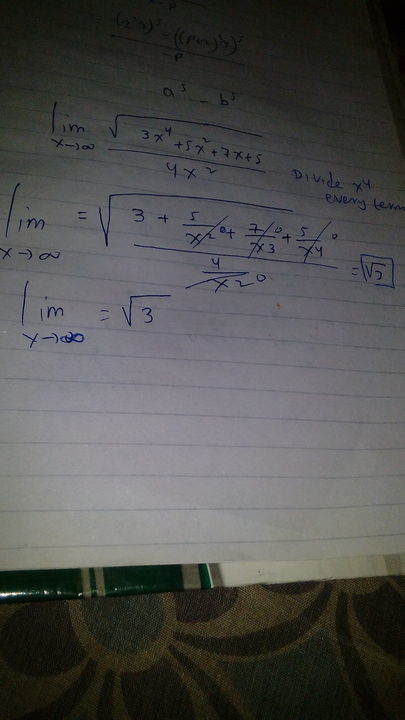 a⁵ - b⁵
lim x→∞ √(3x⁴ + 5x² + 7x + 5) / 4x²
Divide x⁴ every term
lim x→∞ = √(3 + 5/x² 0 + 7/x3 0 + 5/x⁴ 0) / (4/x2 0) = √3
lim x→∞ = √3